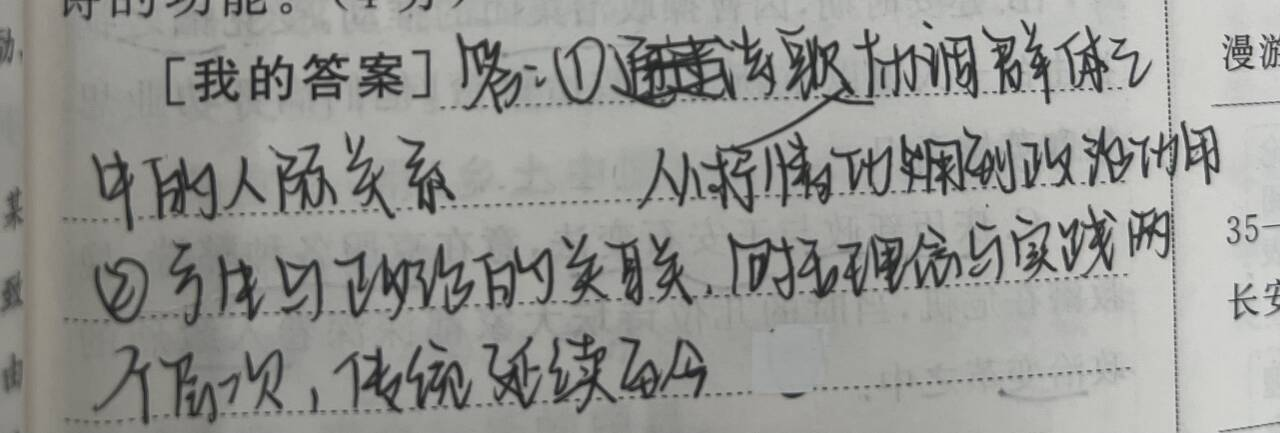 得的功能。(4分)
[我的答案] 答:① 诗歌协调群体之
中的人际关系 从抒情功用到政治功用
②与政治的关联,同括理念与实践两
个层次,传统延续至今
漫游
35—
长安
某
致
由